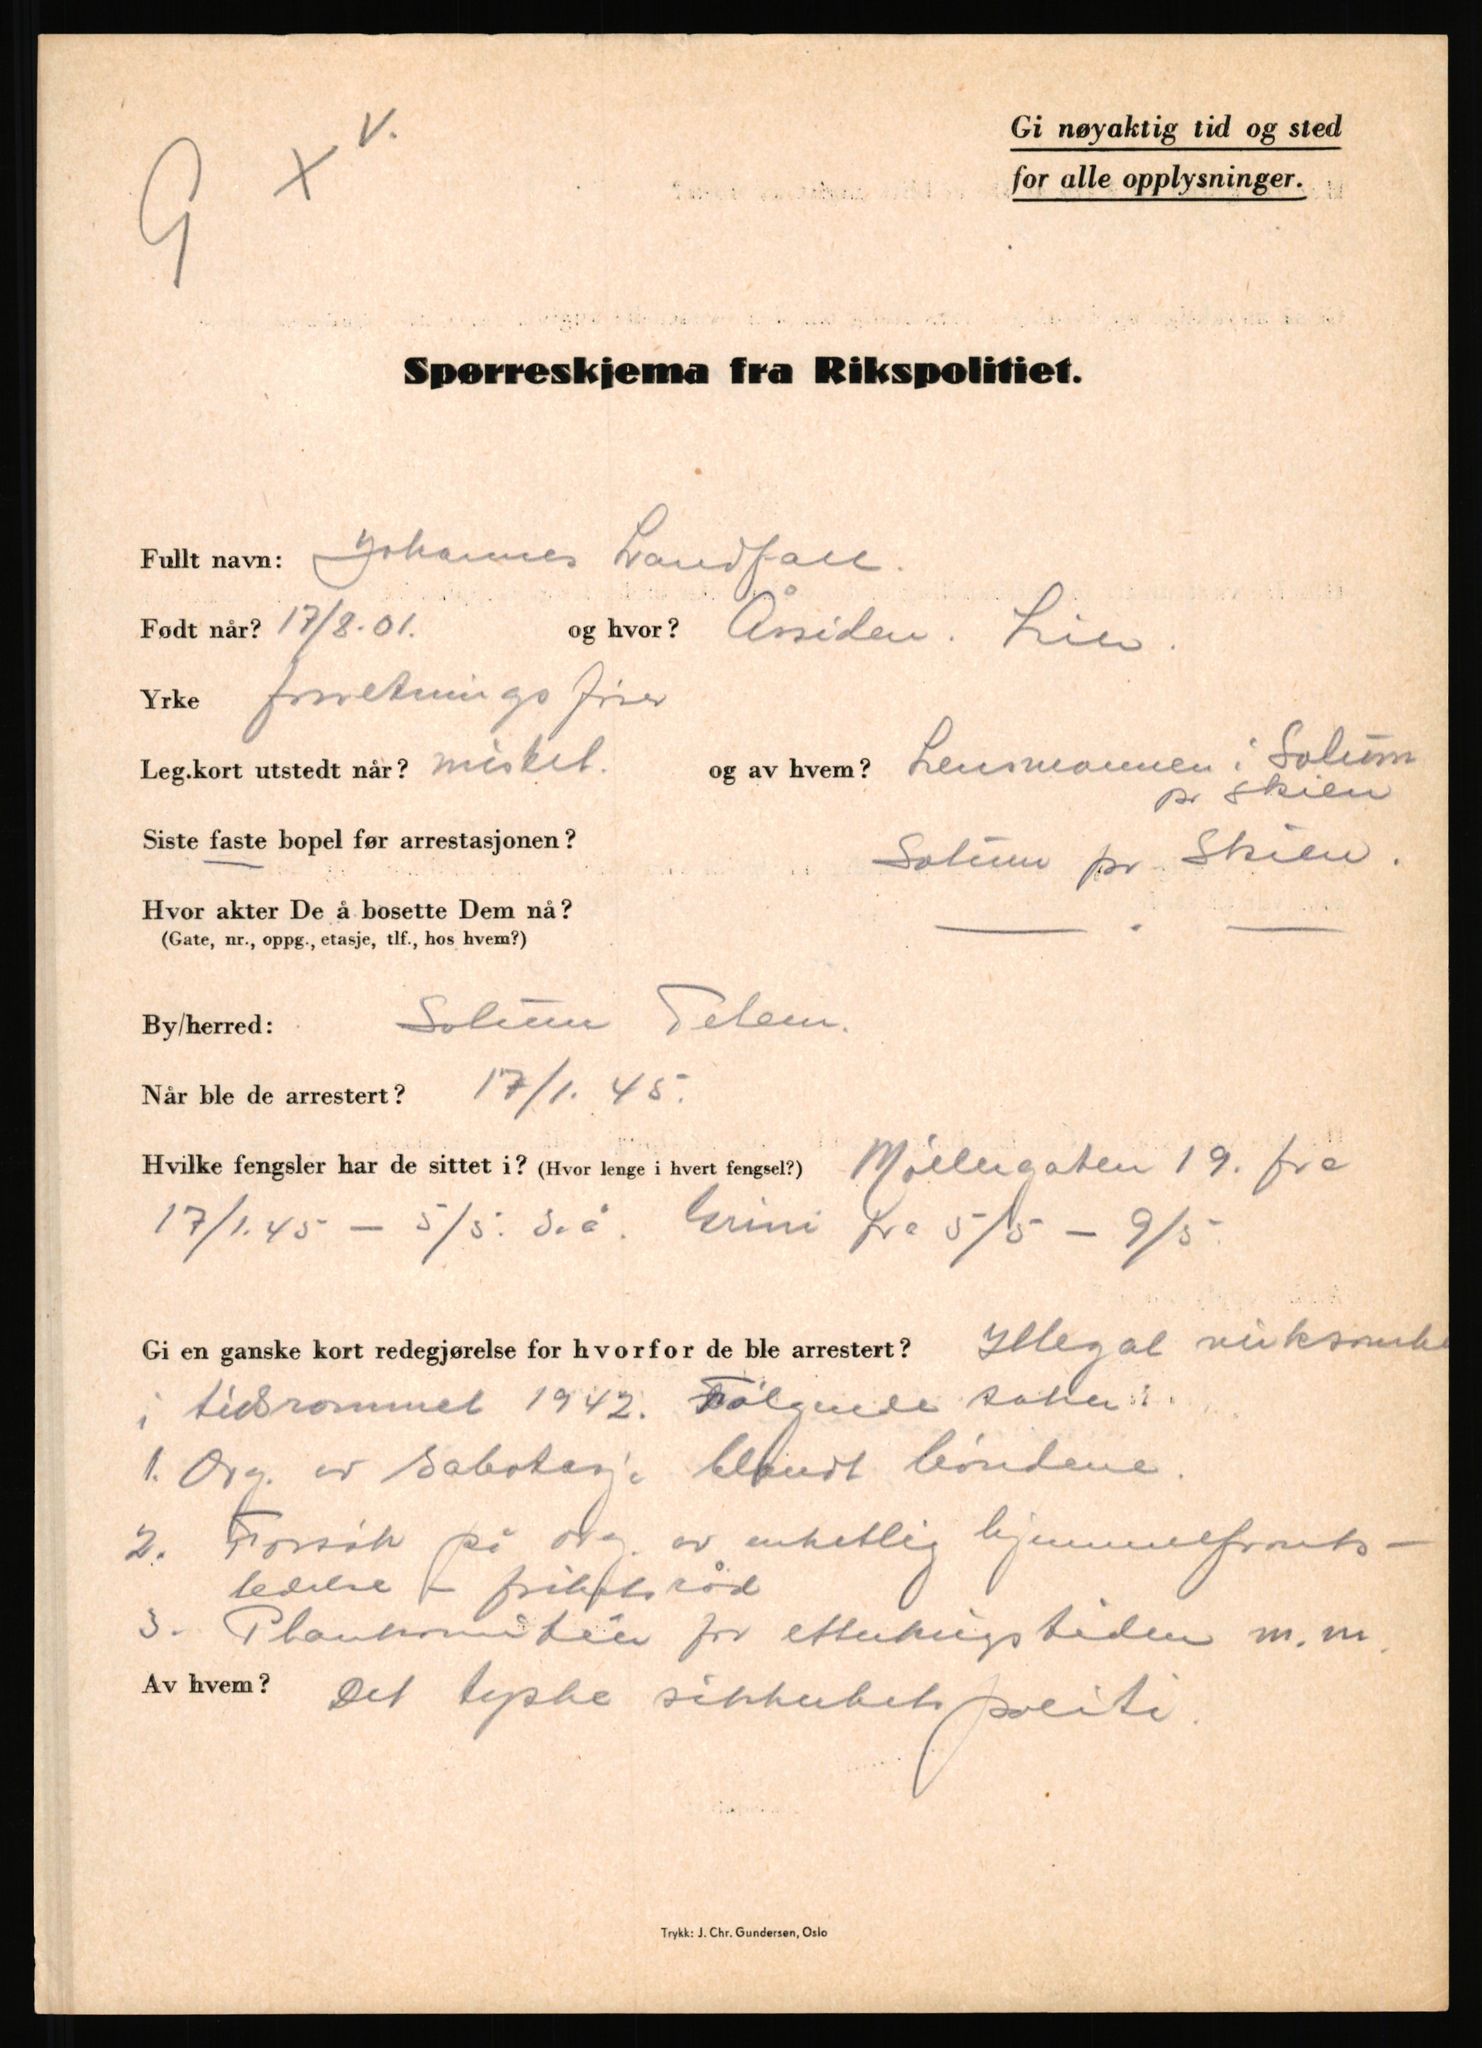 G x v.
Gi nøyaktig tid og sted
for alle opplysninger.
Spørreskjema fra Rikspolitiet.
Fullt navn: Johannes Landfall.
Født når? 17/8.01. og hvor? Åssiden. Lier.
Yrke forretningsfører
Leg.kort utstedt når? mistet. og av hvem? Lensmannen i Solum
pr Skien
Siste faste bopel før arrestasjonen? Solum pr Skien.
Hvor akter De å bosette Dem nå? — . —
(Gate, nr., oppg., etasje, tlf., hos hvem?)
By/herred: Solum Telem.
Når ble de arrestert? 17/1. 45.
Hvilke fengsler har de sittet i? (Hvor lenge i hvert fengsel?) Møllergaten 19. fra
17/1.45 — 5/5. s.å. Grini fra 5/5 — 9/5
Gi en ganske kort redegjørelse for hvorfor de ble arrestert? Illegal virksomhe
i tidsrommet 1942. Følgende saker:
1. Org. av sabotasje blandt bøndene.
2. Forsøk på org. av enhetlig hjemmefronts-
ledelse - frihetsråd
3. Plankomitéen for etterkrigstiden m.m.
Av hvem? Det tyske sikkerhetspoliti.
Trykk: J. Chr. Gundersen, Oslo